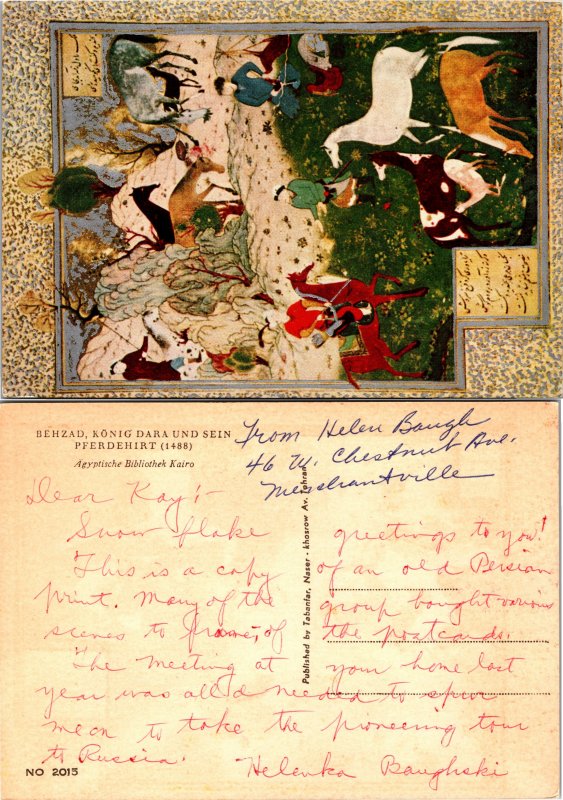 BEHZAD, KÖNIG DARA UND SEIN
PFERDEHIRT (1488)
Ägyptische Bibliothek Kairo
From Helen Baugh
46 W. Chestnut Ave.
Merchantville
Dear Kay:-
Snow flake greetings to you!
This is a copy of an old Persian
print. Many of the group bought various
scenes to frame, of the postcards.
The meeting at your home last
year was all I needed to spur
me on to take the pioneering tour
to Russia.
Helenka Baughski
Published by Tabanfar, Naser - khosrow Av. Tehran
NO 2015